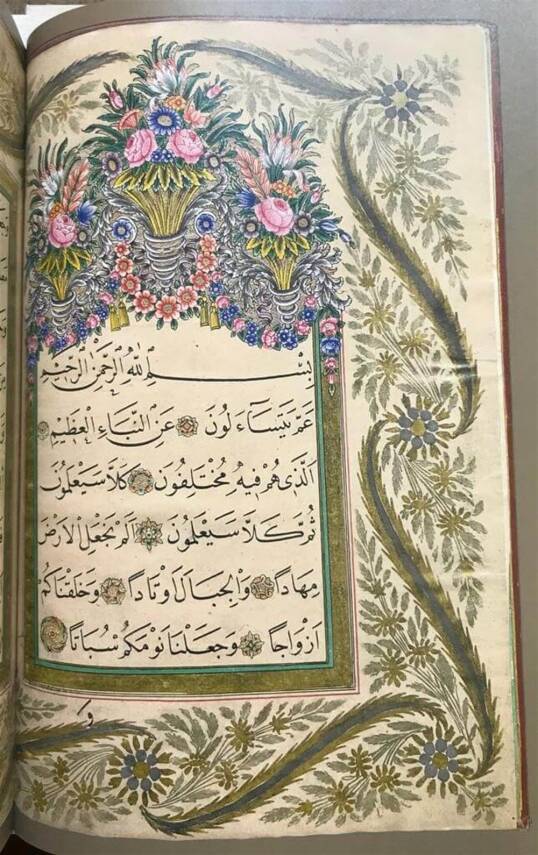 بِسْمِ اللّٰهِ الرَّحْمٰنِ الرَّحِيْمِ
عَمَّ يَتَسَآءَ لُونَ عَنِ النَّبَاءِ الْعَظِيْمِ
اَلَّذِى هُمْ فِيهِ مُخْتَلِفُونَ كَلَّا سَيَعْلَمُونَ
ثُمَّ كَلَّا سَيَعْلَمُونَ اَلَمْ نَجْعَلِ الْاَرْضَ
مِهَادًا وَالْجِبَالَ اَوْتَادًا وَخَلَقْنَاكُمْ
اَزْوَاجًا وَجَعَلْنَا نَوْمَكُمْ سُبَاتًا
و